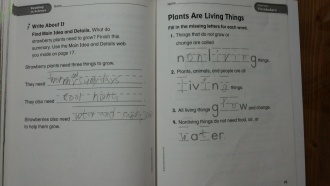 Write About It
Find Main Idea and Details. What do
strawberry plants need to grow? Finish the
summary. Use the Main Idea and Details web
you made on page 17.
Strawberry plants need three things to grow.
They need
They also need
Strawberries also need
to help them grow.
Plants Are Living Things
Fill in the missing letters for each word.
1. Things that do not grow or
change are called
nonliving things.
2. Plants, animals, and people are all
living things.
3. All living things grow and change.
4. Nonliving things do not need food, air, or
water.